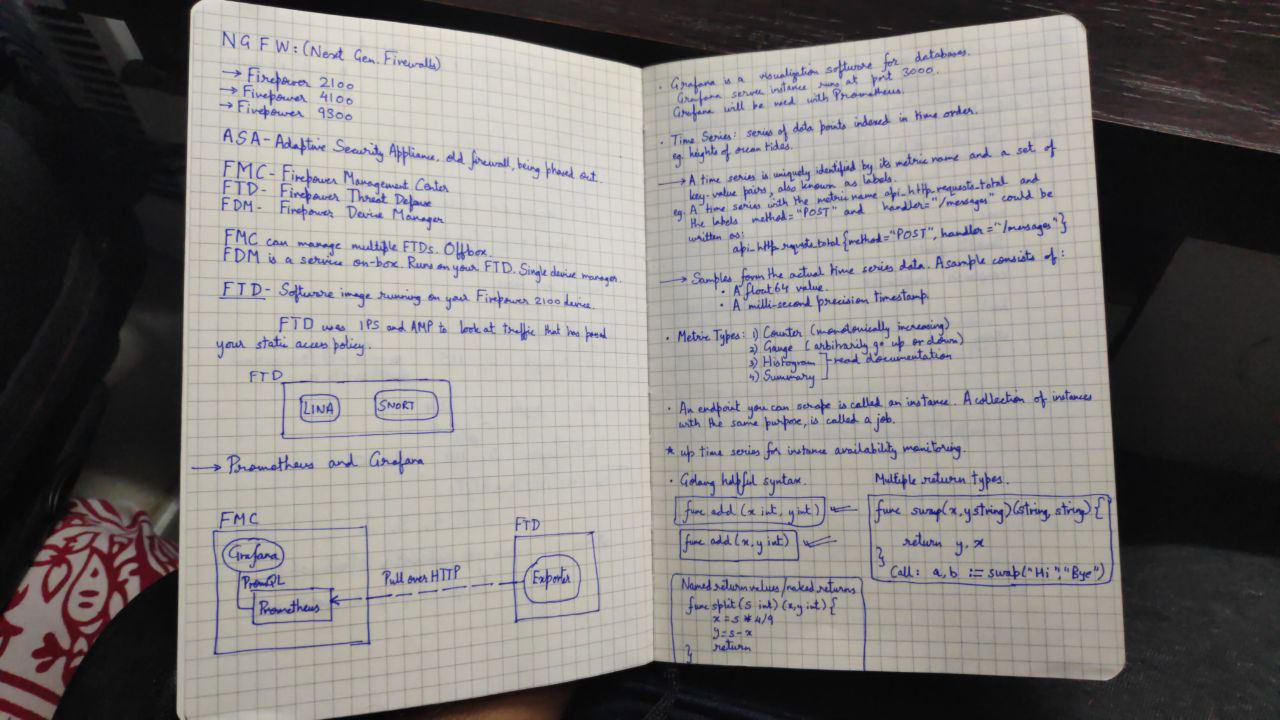 NGFW: (Next Gen. Firewalls)
→ Firepower 2100
→ Firepower 4100
→ Firepower 9300
ASA - Adaptive Security Appliance, old firewall, being phased out.
FMC - Firepower Management Center
FTD - Firepower Threat Defense
FDM - Firepower Device Manager
FMC can manage multiple FTDs. Offbox.
FDM is a service on-box. Runs on your FTD. Single device manager.
FTD - Software image running on your Firepower 2100 device.
FTD uses IPS and AMP to look at traffic that has passed
your static access policy.
FTD
LINA
SNORT
→ Prometheus and Grafana
FMC
Grafana
PromQL
Prometheus
Pull over HTTP
FTD
Exporter
· Grafana is a visualization software for databases.
Grafana server instance runs at port 3000.
Grafana will be used with Prometheus.
· Time Series: series of data points indexed in time order.
eg. heights of ocean tides.
→ A time series is uniquely identified by its metric name and a set of
key-value pairs, also known as labels.
eg. A time series with the metric name api_http_requests_total and
the labels method="POST" and handler="/messages" could be
written as:
api_http_requsts_total{method="POST", handler="/messages"}
→ Samples form the actual time series data. A sample consists of:
· A float64 value.
· A milli-second precision timestamp.
· Metric Types: 1) Counter (monotonically increasing)
2) Gauge (arbitrarily go up or down)
3) Histogram
4) Summary
read documentation
· An endpoint you can scrape is called an instance. A collection of instances
with the same purpose, is called a job.
* up time series for instance availability monitoring.
· Golang helpful syntax.
func add (x int, y int)
func add (x, y int)
Named return values/naked returns
func split (s int) (x, y int) {
x = s * 4/9
y = s - x
return
}
Multiple return types.
func swap(x, y string) (string, string) {
return y, x
}
Call: a, b := swap("Hi", "Bye")